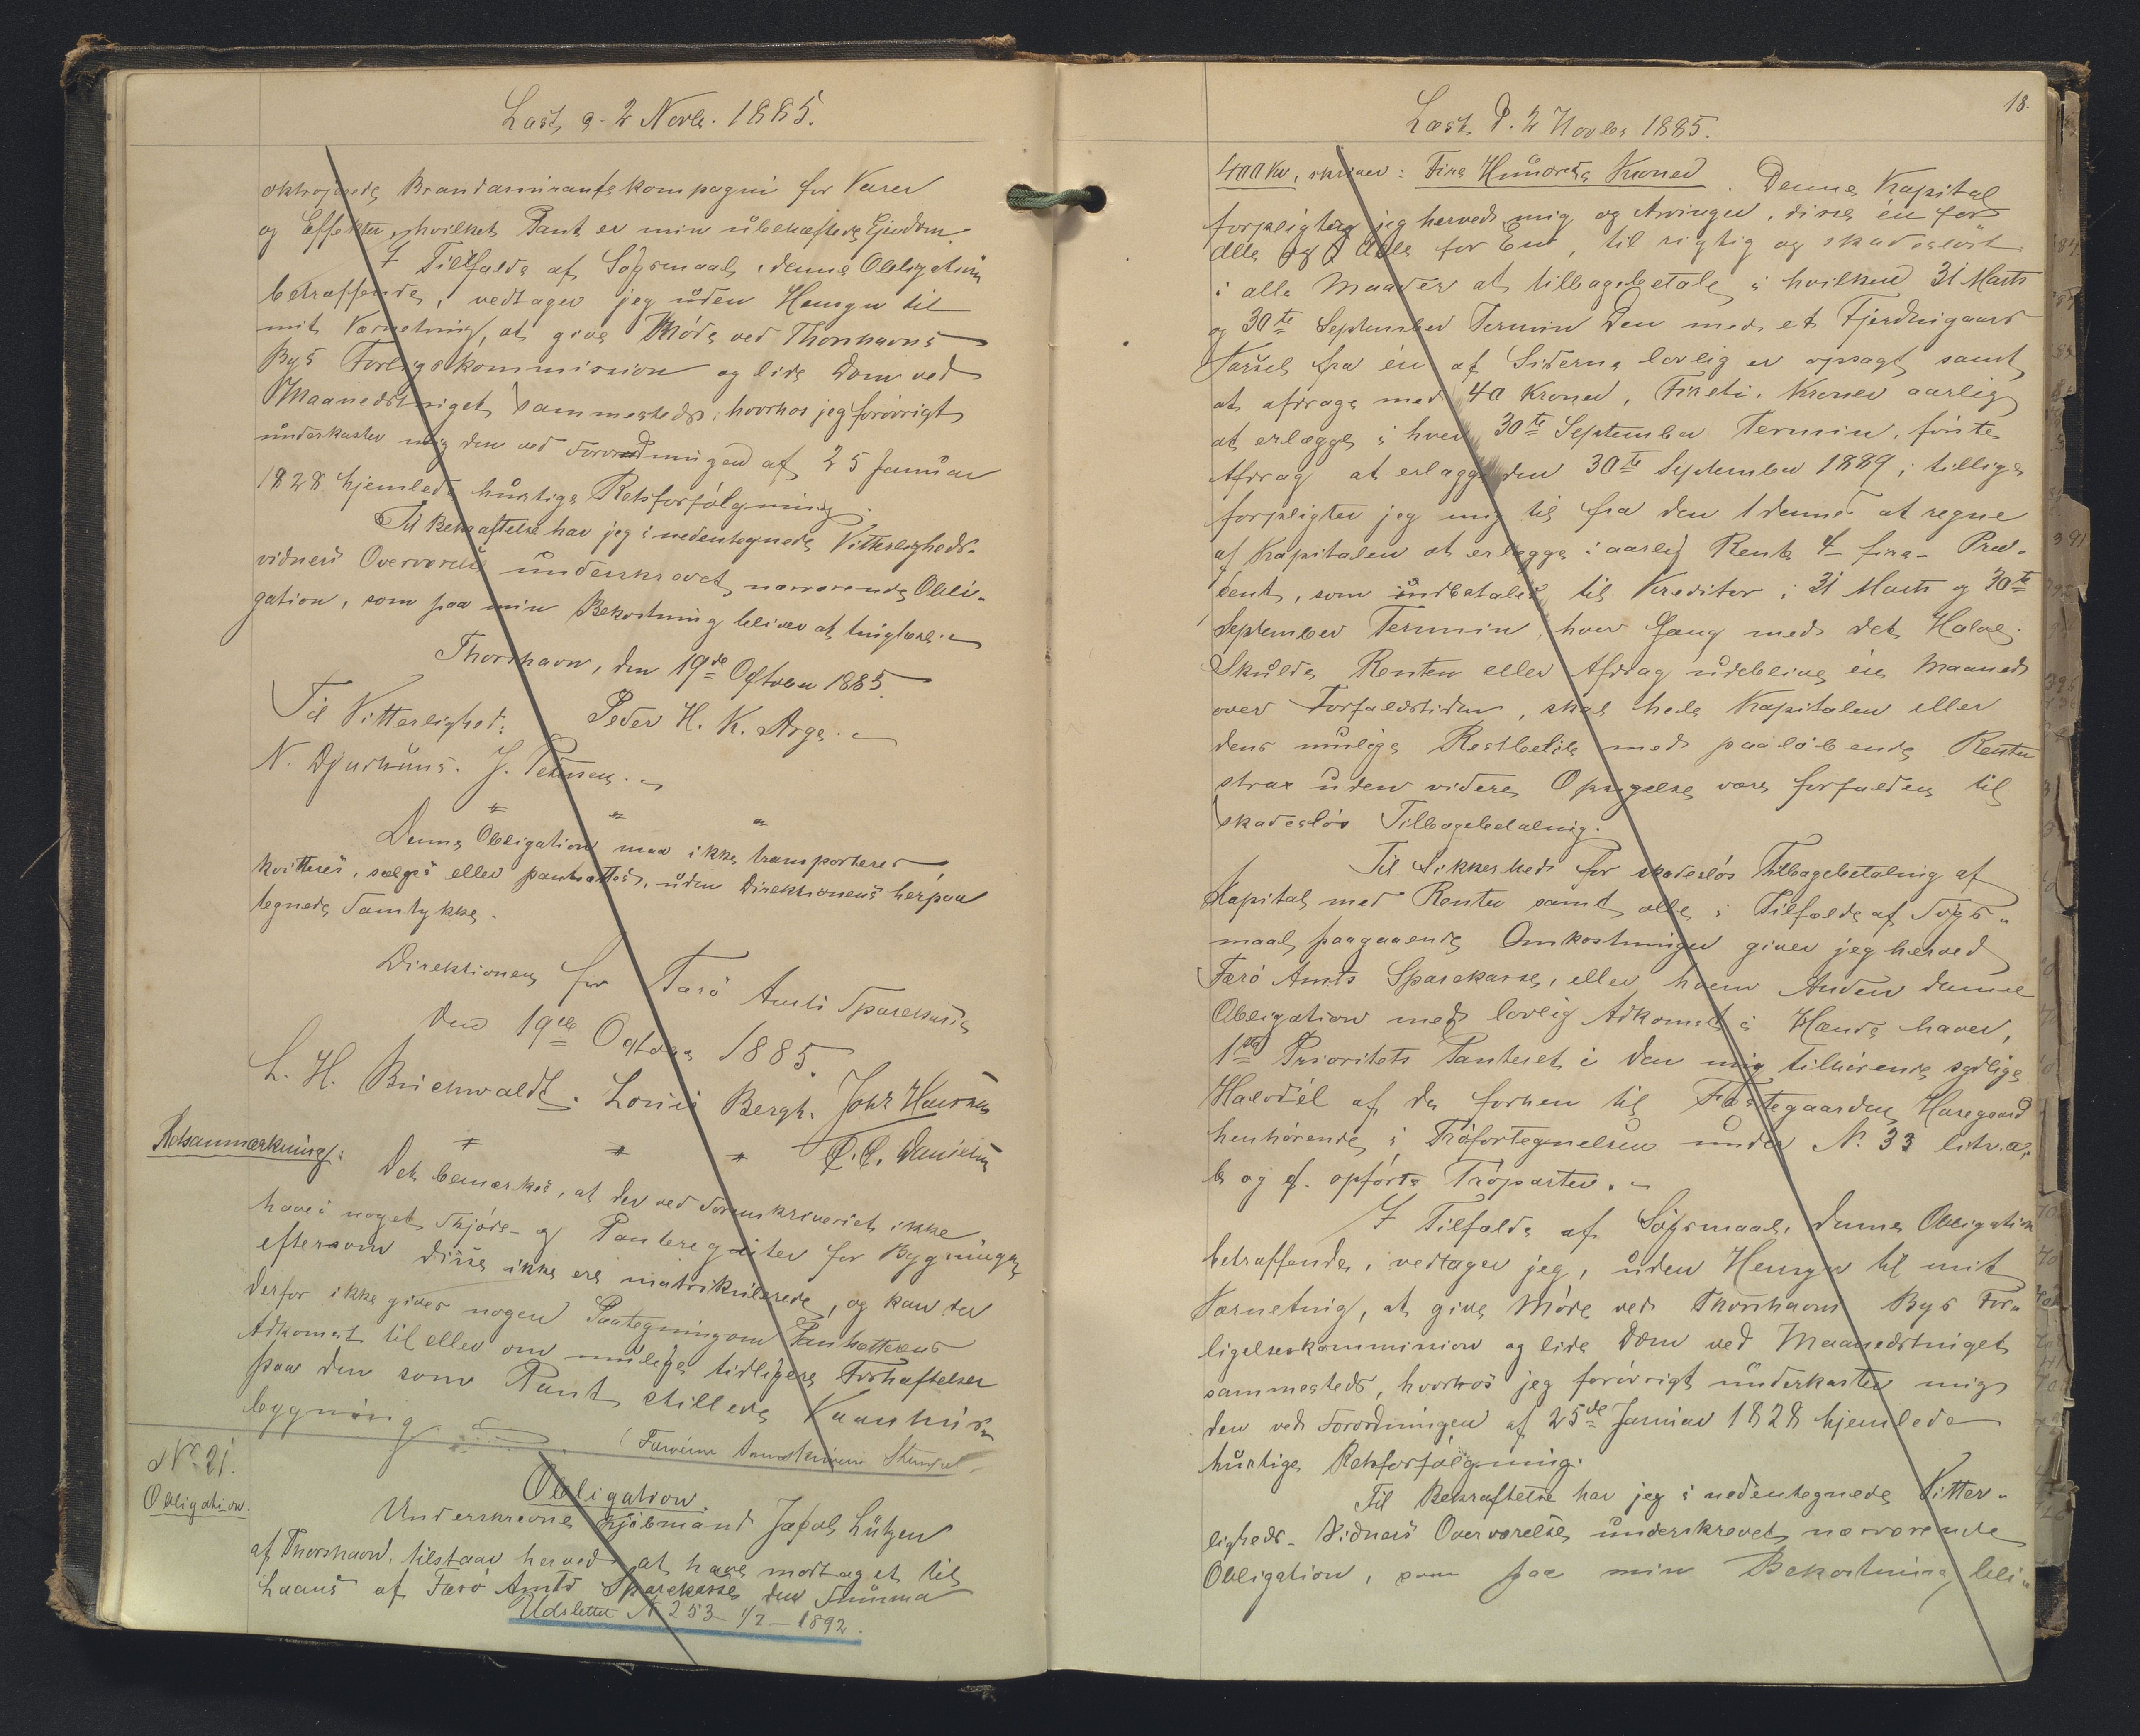 Læst d. 2 Novbr. 1885.
oktrojerede Brandassurancekompagni for Varer
og Effekter, hvilket Pant er min ubehæftede Ejendom.
I Tilfælde af Søgsmaal, denne Obligation
betræffende, vedtager jeg uden Hensyn til
mit Værneting, at give Møde ved Thorshavns
Bys Forligskommission og lide Dom ved
Maanedstinget sammesteds, hvorhos jeg forøvrigt
underkaster mig den ved Forordningen af 25 Januar
1828 hjemlede hurtige Retsforfølgning.
Til Bekræftelse har jeg i nedentegnede Vitterligheds-
vidners Overværelse underskrevet nærværende Obli-
gation, som paa min Bekostning bliver at tinglæse.
Thorshavn, den 19de October 1885.
Til Vitterlighed: Peder H. K. Arge.
N. Djurhuus. J. Petersen.
Denne Obligation maa ikke transporteres,
kvitteres, sælges eller pantsættes, uden Direktionens herpaa
tegnede Samtykke.
Direktionen for Færø Amts Sparekasse
den 19de October 1885.
L. H. Buchwaldt. Louis Bergh. Johs Hansen
C. C. Danielsen
Retsanmærkning:
Det bemærkes, at der ved Sorenskriveriet ikke
haves noget Skjøde- og Panteregister for Bygninger
eftersom disse ikke ere matrikulerede, og kan der
derfor ikke gives nogen Paategning om Pantsætterens
Adkomst til eller om mulige tidligere Forhæftelser
paa den som Pant stillede Vaanhus-
bygning
No 21.
Obligation.
Obligation.
Underskrevne Kjøbmand Jacob Lützen
af Thorshavn, tilstaar herved at have modtaget til
Laans af Færø Amts Sparekasse den Summa
Udslettet N 253 1/7 - 1892.
18.
Læst d. 2 Novbr 1885.
400 Kr, skriver: Fire Hundrede Kroner. Denne Kapital
forpligter jeg herved mig og Arvinger, disse én for
Alle og Alle for Én, til rigtig og skadesløst
i alle Maader at tilbagebetale i hvilken 31 Marts
og 30te September Termin den med et Fjerdingaars
Varsel fra én af Siderne lovlig er opsagt samt
at afdrage med 40 Kroner, Fireti, Kroner aarlig
at erlægge i hver 30te September Termin, første
Afdrag at erlægge den 30te September 1889; tillige
forpligter jeg mig til fra den 1 dennes at regne
af Kapitalen at erlægge i aarlig Rente 4 fire - Pro-
cent, som indbetales til Kreditor i 31 Marts og 30te
September Termin hver Gang med det Halve.
Skulde Renten eller Afdrag udeblive én Maaned
over Forfaldstiden, skal hele Kapitalen eller
dens mulige Restbeløb med paaløbende Renter
strax uden videre Opsigelse være forfalden til
skadesløs Tilbagebetaling.
Til Sikkerhed for skadesløs Tilbagebetaling af
Kapital med Renter samt alle i Tilfælde af Søgs-
maal paagaaende Omkostninger giver jeg herved
Færø Amts Sparekasse, eller hvem Anden denne
Obligation med lovlig Adkomst i Hænde haver,
1ste Prioritets Panteret i den mig tilhørende sydlige
Halvdel af de forhen til Fæstegaarden Husegaard
henhørende i Trøfortegnelsen under No 33 litr. a,
b og d. opførte Trøparter.
I Tilfælde af Søgsmaal, denne Obligation
betræffende, vedtager jeg, uden Hensyn til mit
Værneting, at give Møde ved Thorshavns Bys For-
ligelseskommission og lide Dom ved Maanedstinget
sammesteds, hvorhos jeg forøvrigt underkaster mig
den ved Forordningen af 25de Januar 1828 hjemlede
hurtige Retsforfølgning.
Til Bekræftelse har jeg i nedentegnede Vitter-
ligheds-Vidners Overværelse underskrevet nærværende
Obligation, som paa min Bekostning bli-